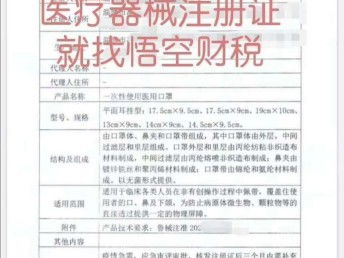 医疗器械注册证
就找悟空财税
代理人名称
代理人住所
产品名称 一次性使用医用口罩
型号、规格 平面耳挂型：17.5cm×9.5cm、17.5cm×9cm、19cm×10cm、
13cm×9cm、14cm×9cm、14.5cm×9.5cm。
结构及组成 由口罩体、鼻夹和口罩带组成，其中口罩体由外层、中间
过滤层和里层组成。外层和里层由丙纶纺粘非织造布
材料制成，中间过滤层由丙纶熔喷非织造布制成；鼻夹由
镀锌铁丝和聚丙烯材料制成；口罩带由锦纶和氨纶材料制
成。以无菌形式提供。
适用范围 适用于临床各类人员在非有创操作过程中佩带，覆盖住使
用者的口、鼻及下颌，为防止病原体微生物、颗粒物等的
直接透过提供一定的物理屏障。
附件 产品技术要求：鲁械注准 20
其他内容
疫情急需，应急审评审批，核发注册证后三个月内需补充